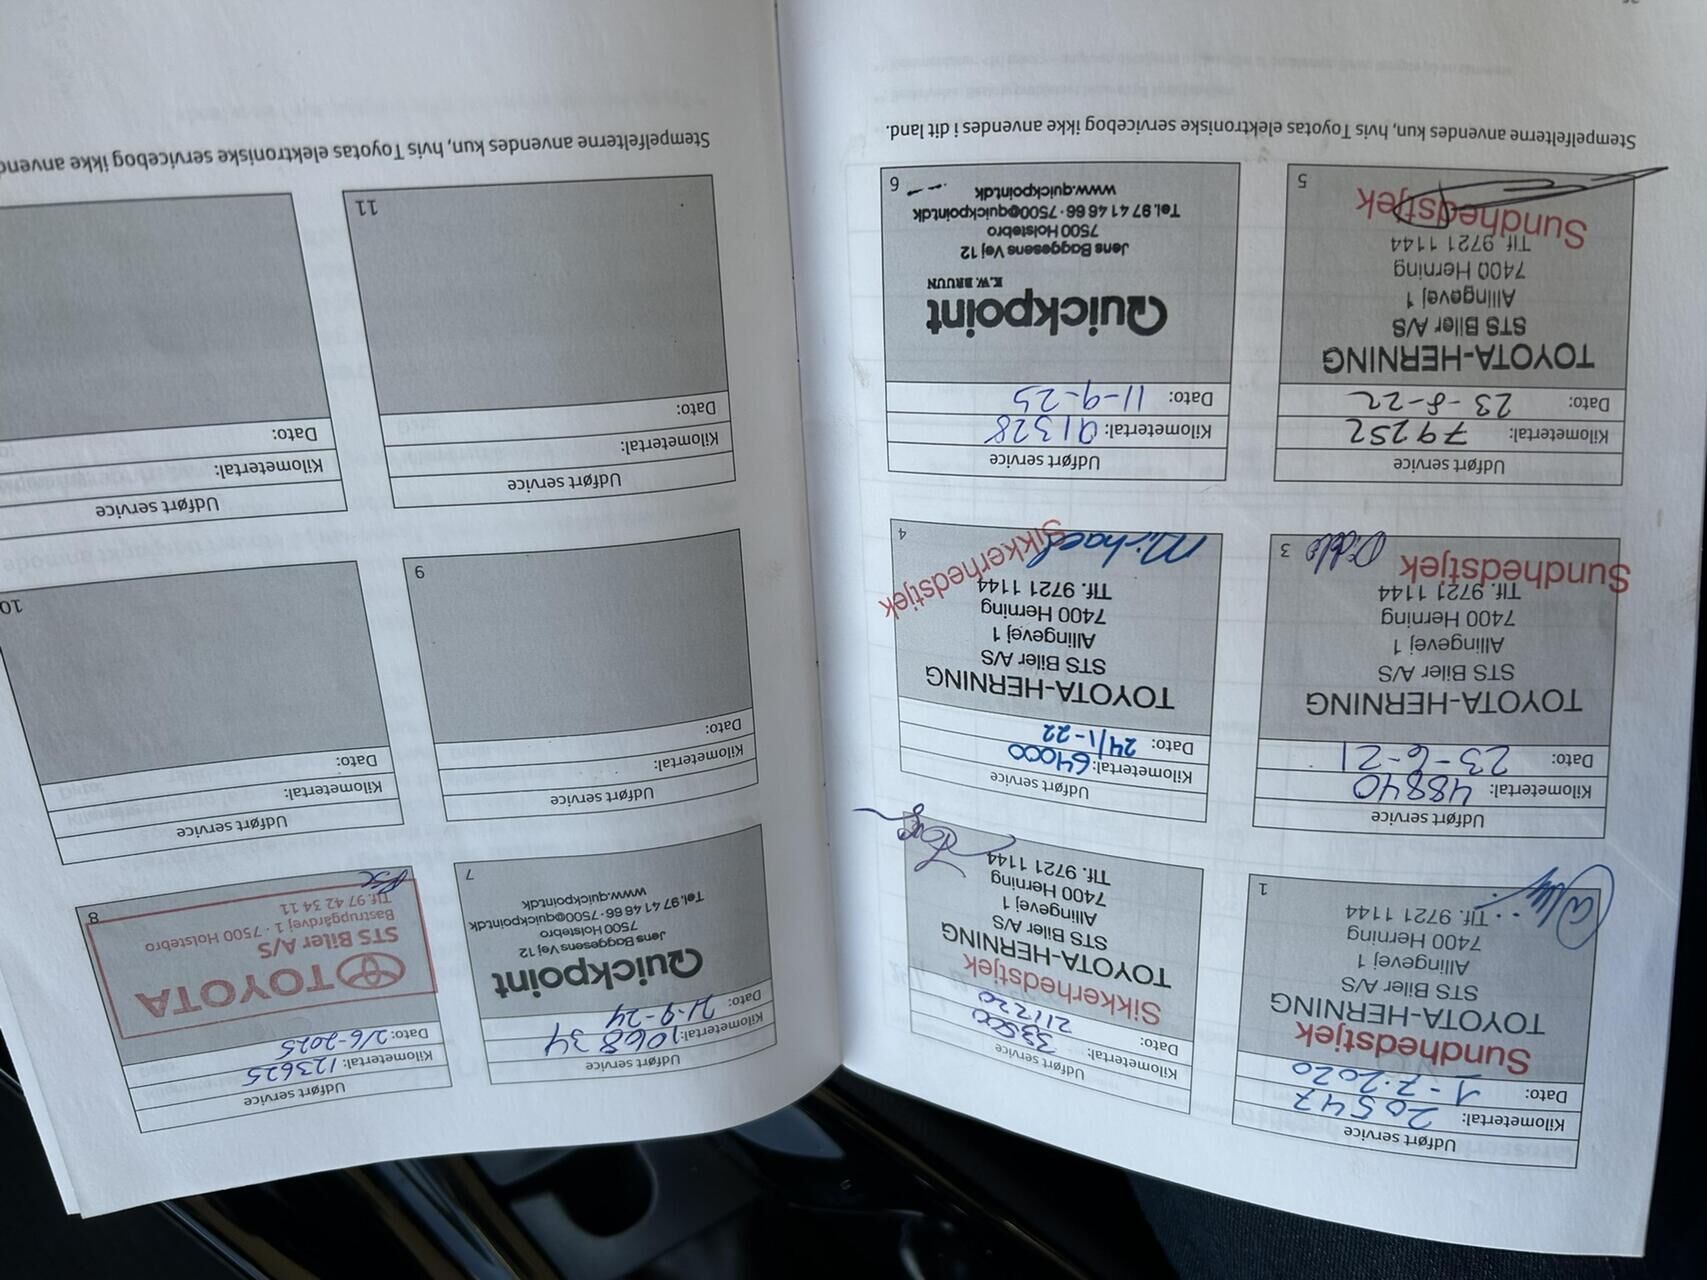 Udført service
Kilometertal: 20547
Dato: 1-7-2020
Sundhedstjek
TOYOTA-HERNING
STS Biler A/S
Allingevej 1
7400 Herning
Tlf. 9721 1144
1
Udført service
Kilometertal: 33500
Dato:
Sikkerhedstjek
TOYOTA-HERNING
STS Biler A/S
Allingevej 1
7400 Herning
Tlf. 9721 1144
Udført service
Kilometertal: 48840
Dato: 23-6-21
TOYOTA-HERNING
STS Biler A/S
Allingevej 1
7400 Herning
Tlf. 9721 1144
Sundhedstjek
3
Udført service
Kilometertal: 64000
Dato: 24/1-22
TOYOTA-HERNING
STS Biler A/S
Allingevej 1
7400 Herning
Tlf. 9721 1144
Sikkerhedstjek
Michael
4
Udført service
Kilometertal: 79252
Dato: 23-8-22
TOYOTA-HERNING
STS Biler A/S
Allingevej 1
7400 Herning
Tlf. 9721 1144
Sundhedstjek
5
Udført service
Kilometertal: 91328
Dato: 11-9-23
Quickpoint
K.W. BRUUN
Jens Baggesens Vej 12
7500 Holstebro
Tel. 97 41 46 66 · 7500@quickpoint.dk
www.quickpoint.dk
6
Stempelfelterne anvendes kun, hvis Toyotas elektroniske servicebog ikke anvendes i dit land.
Udført service
Kilometertal: 106834
Dato: 21-9-24
Quickpoint
Jens Baggesens Vej 12
7500 Holstebro
Tel. 97 41 46 66 · 7500@quickpoint.dk
www.quickpoint.dk
7
Udført service
Kilometertal: 123625
Dato: 2/6-2025
TOYOTA
STS Biler A/S
Bastrupgårdvej 1 · 7500 Holstebro
Tlf. 97 42 34 11
8
Udført service
Kilometertal:
Dato:
9
Udført service
Kilometertal:
Dato:
10
Udført service
Kilometertal:
Dato:
11
Udført service
Kilometertal:
Dato:
Stempelfelterne anvendes kun, hvis Toyotas elektroniske servicebog ikke